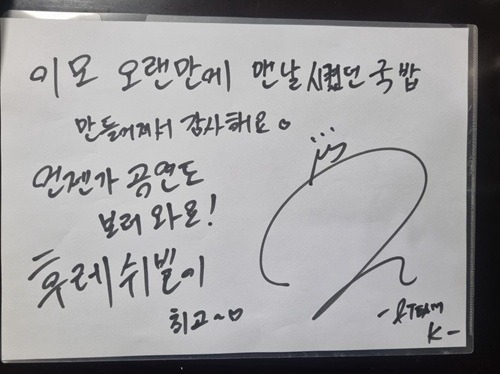 이모 오랜만에 맨날 시켰던 국밥
만들어져서 감사해요
언젠가 공연도
보러 와요!
후레쉬빌이
최고~
-&TEAM
K-